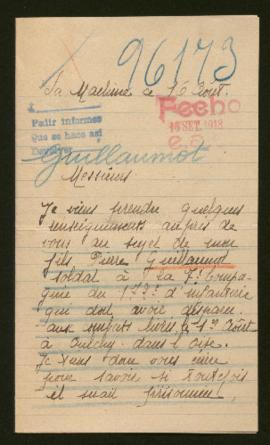 96173
La Machine ce 16 Août.
Fecho
16 SET. 1918
e.a.
Pedir informes
Que se hace así
Guillaumot
Messieurs
Je viens prendre quelques
renseignements auprès de
vous au sujet de mon
fils Pierre Guillaumot
soldat à la 7e Compa-
gnie du d'infanterie
qui doit avoir disparu
aux combats livrés le 1er Août
à dans l'Oise.
Je viens donc vous
pour savoir si toutefois
il serait prisonnier